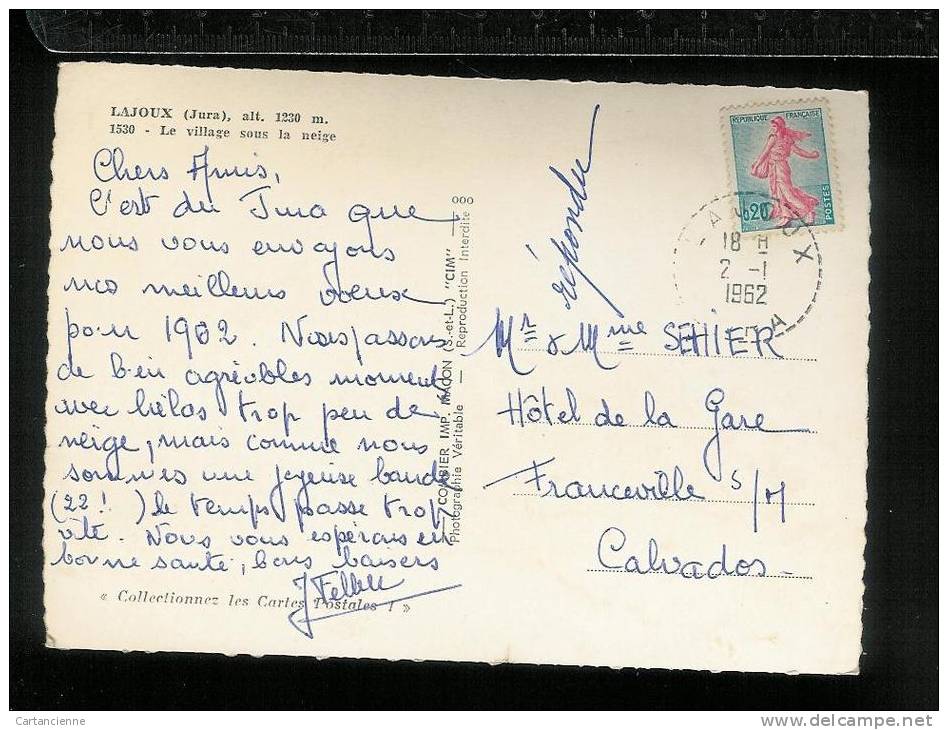 LAJOUX (Jura), alt. 1230 m.
1530 - Le village sous la neige
Chers Amis,
C'est du Jura que
nous vous envoyons
nos meilleurs voeux
pour 1962. Nous passons
de bien agréables moments
avec hélas trop peu de
neige, mais comme nous
sommes une joyeuse bande
(22!) le temps passe trop
vite. Nous vous espérons en
bonne santé, bons baisers
« Collectionnez les Cartes Postales ! »
COMBIER IMP. MACON (S.-et-L.) "CIM"
Photographie Véritable — Reproduction Interdite
ooo
répondu
REPUBLIQUE FRANÇAISE
0.20
POSTES
LAJOUX
18 H
2 -1
1962
JURA
Mr & Mme SEHIER
Hôtel de la Gare
Franceville s/M
Calvados
Cartancienne
www.delcampe.net